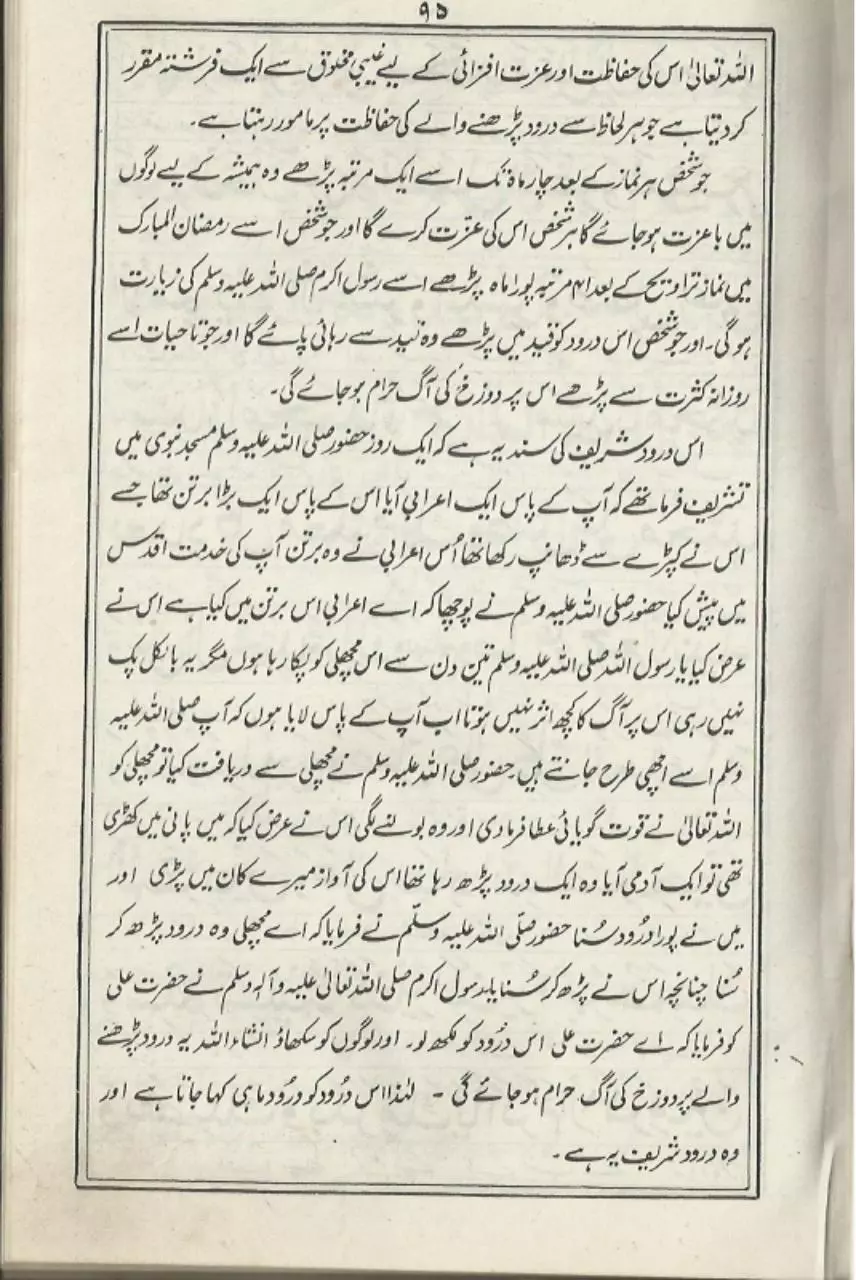 ۹۵
اللہ تعالیٰ اس کی حفاظت اور عزت افزائی کے لیے غیبی مخلوق سے ایک فرشتہ مقرر
کر دیتا ہے جو ہر لحاظ سے درود پڑھنے والے کی حفاظت پر مامور رہتا ہے۔
جو شخص ہر نماز کے بعد چار ماہ تک اسے ایک مرتبہ پڑھے وہ ہمیشہ کے لیے لوگوں
میں باعزت ہو جائے گا ہر شخص اس کی عزت کرے گا اور جو شخص اسے رمضان المبارک
میں نماز تراویح کے بعد ۴۱ مرتبہ پورا ماہ پڑھے اسے رسول اکرم صلی اللہ علیہ وسلم کی زیارت
ہو گی۔ اور جو شخص اس درود کو قید میں پڑھے وہ قید سے رہائی پائے گا اور جو تا حیات اسے
روزانہ کثرت سے پڑھے اس پر دوزخ کی آگ حرام ہو جائے گی۔
اس درود شریف کی سند یہ ہے کہ ایک روز حضور صلی اللہ علیہ وسلم مسجد نبوی میں
تشریف فرما تھے کہ آپ کے پاس ایک اعرابی آیا اس کے پاس ایک بڑا برتن تھا جسے
اس نے کپڑے سے ڈھانپ رکھا تھا اُس اعرابی نے وہ برتن آپ کی خدمت اقدس
میں پیش کیا حضور صلی اللہ علیہ وسلم نے پوچھا کہ اے اعرابی اس برتن میں کیا ہے اس نے
عرض کیا یا رسول اللہ صلی اللہ علیہ وسلم تین دن سے اس مچھلی کو پکا رہا ہوں مگر یہ بالکل پک
نہیں رہی اس پر آگ کا کچھ اثر نہیں ہوتا اب آپ کے پاس لایا ہوں کہ آپ صلی اللہ علیہ
وسلم اسے اچھی طرح جانتے ہیں حضور صلی اللہ علیہ وسلم نے مچھلی سے دریافت کیا تو مچھلی کو
اللہ تعالیٰ نے قوت گویائی عطا فرما دی اور وہ بولنے لگی اس نے عرض کیا کہ میں پانی میں کھڑی
تھی تو ایک آدمی آیا وہ ایک درود پڑھ رہا تھا اس کی آواز میرے کان میں پڑی اور
میں نے پورا درُود سُنا حضور صلّی اللہ علیہ وسلّم نے فرمایا کہ اے مچھلی وہ درود پڑھ کر
سُنا چنانچہ اس نے پڑھ کر سُنایا رسول اکرم صلی اللہ تعالیٰ علیہ وآلہٖ وسلم نے حضرت علی
کو فرمایا کہ اے حضرت علی اس درُود کو لکھ لو۔ اور لوگوں کو سکھاؤ انشاء اللہ یہ درود پڑھنے
والے پر دوزخ کی آگ حرام ہو جائے گی - لہٰذا اس درُود کو درُود ماہی کہا جاتا ہے اور
وہ درود شریف یہ ہے۔